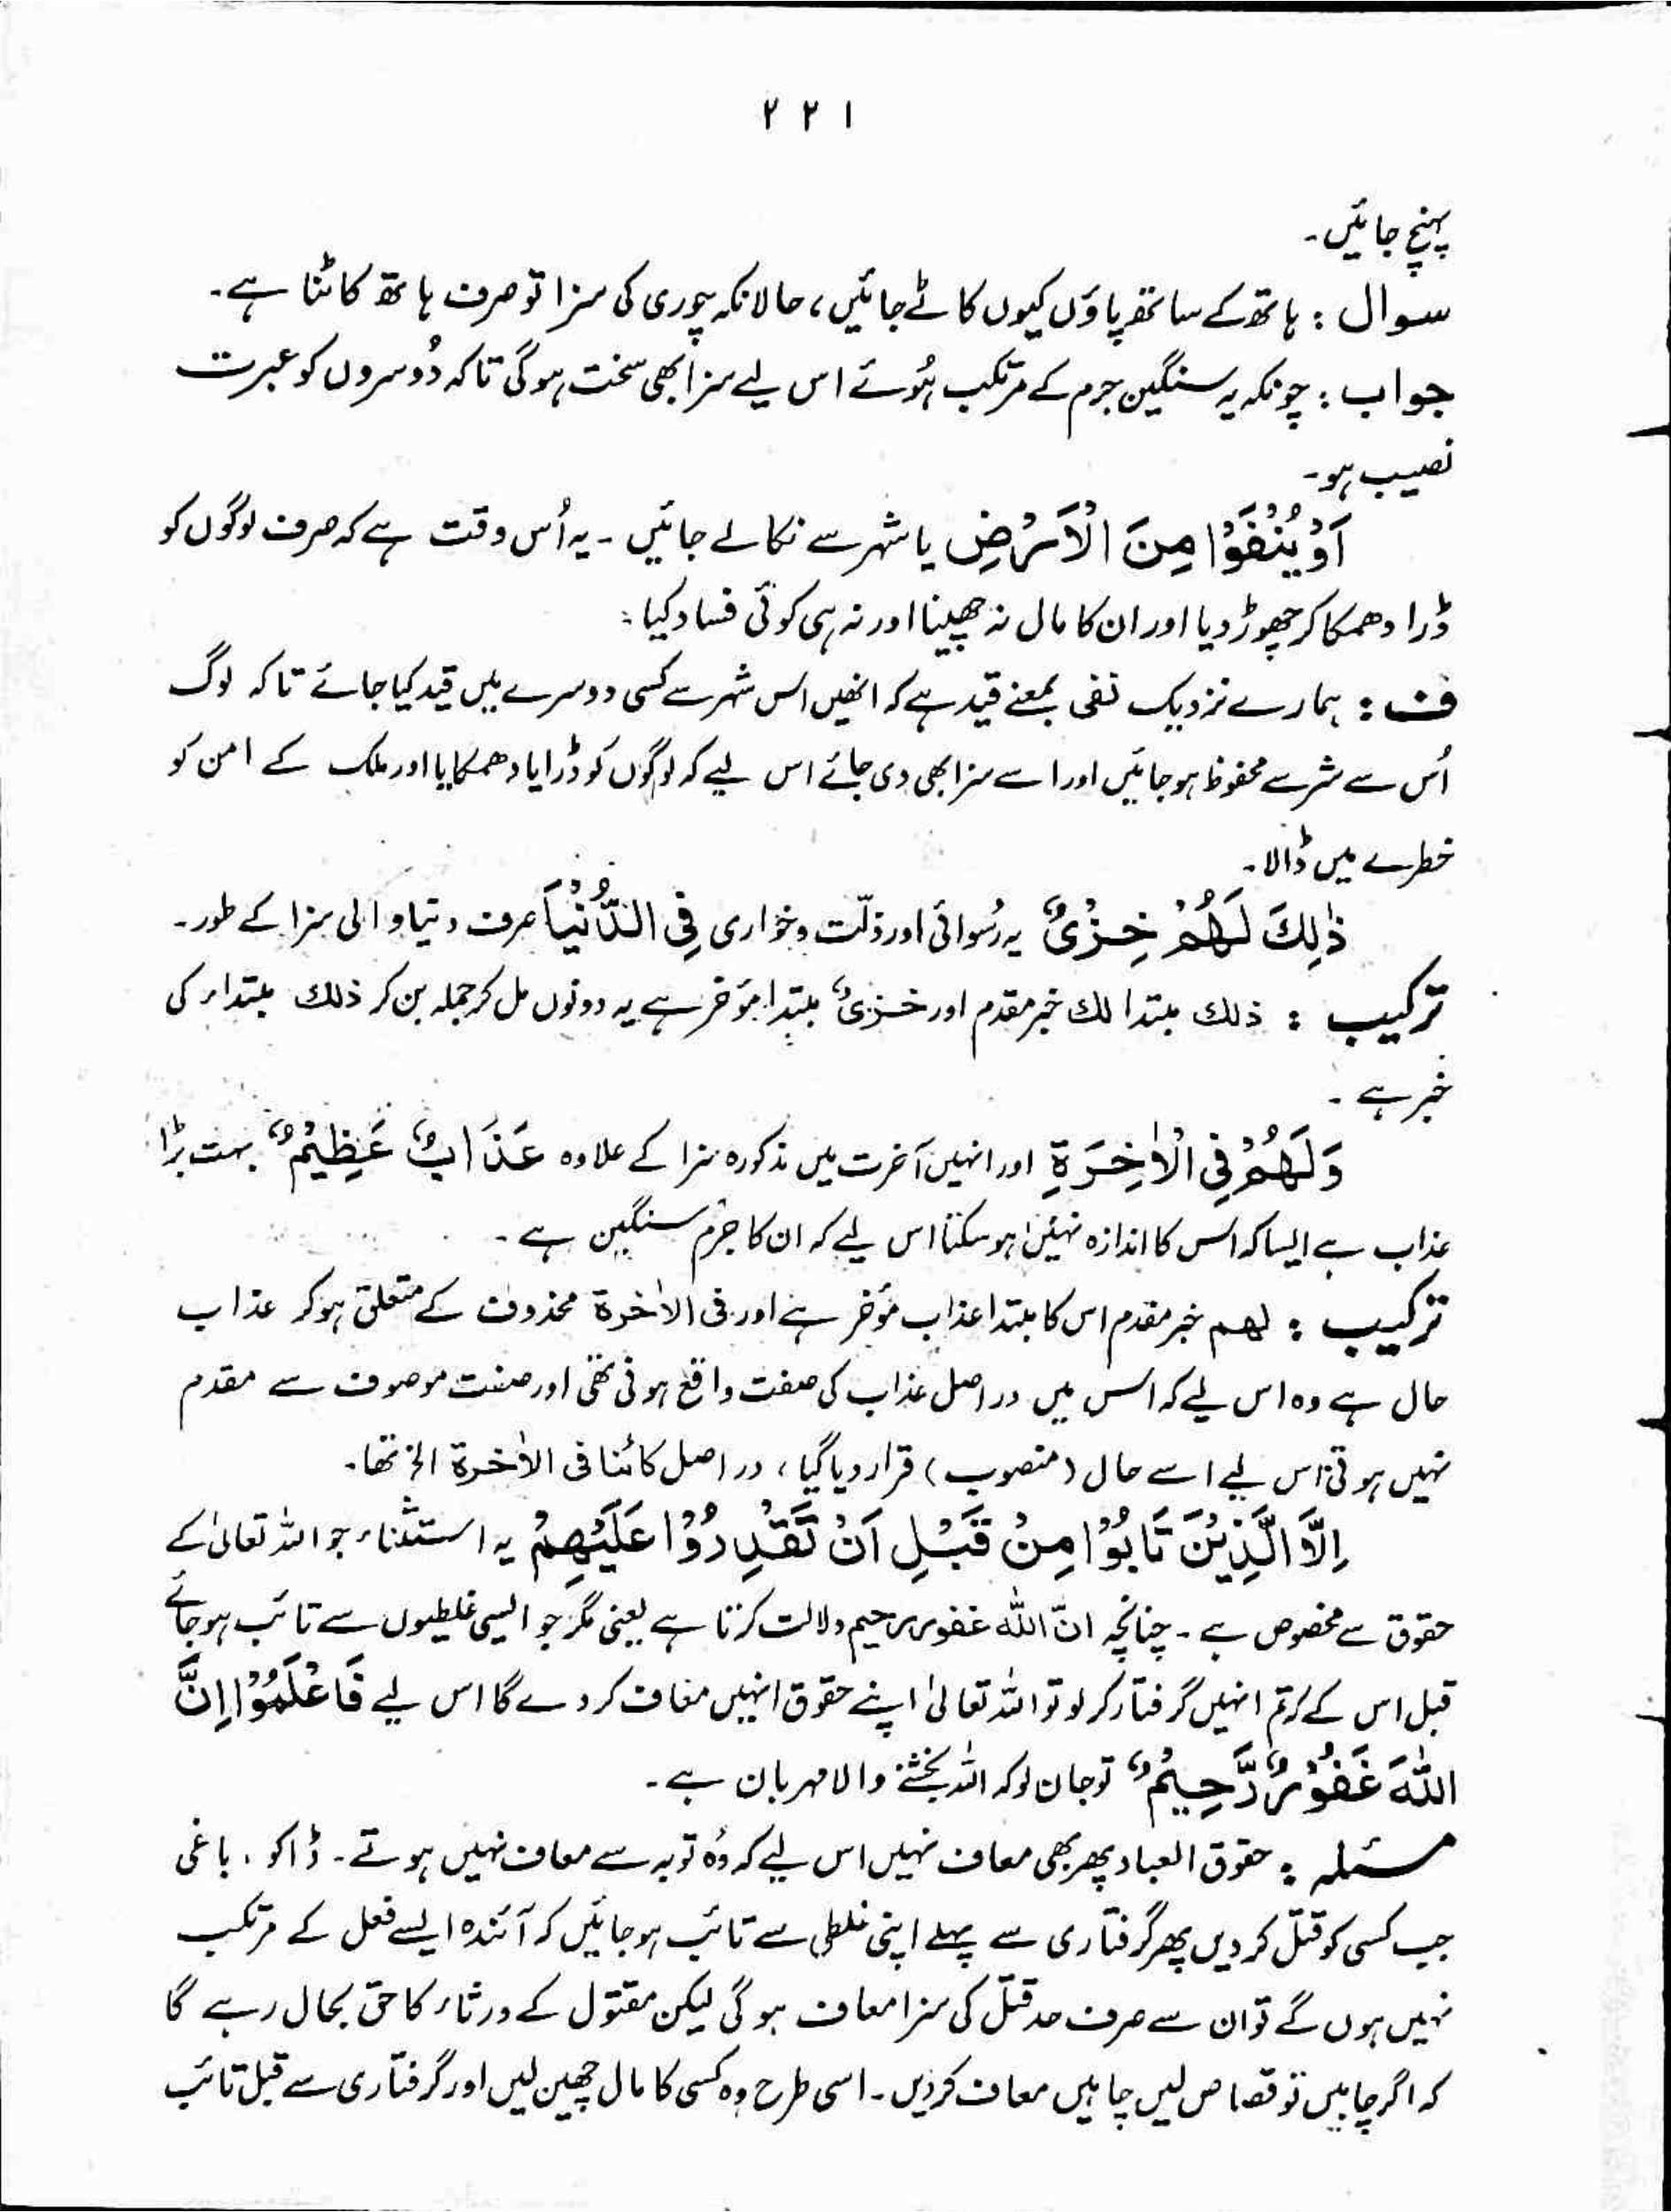 ۲۲۱
پہنچ جائیں۔
سوال : ہاتھ کے ساتھ پاؤں کیوں کاٹے جائیں، حالانکہ چوری کی سزا تو صرف ہاتھ کاٹنا ہے۔
جواب : چونکہ یہ سنگین جرم کے مرتکب ہُوئے اس لیے سزا بھی سخت ہوگی تاکہ دُوسروں کو عبرت
نصیب ہو۔
اَوْ یُنْفَوْا مِنَ الْاَرْضِ یا شہر سے نکالے جائیں ۔ یہ اُس وقت ہے کہ صرف لوگوں کو
ڈرا دھمکا کر چھوڑ دیا اور ان کا مال نہ چھینا اور نہ ہی کوئی فساد کیا :
ف : ہمارے نزدیک نفی بمعنے قید ہے کہ انھیں اس شہر سے کسی دوسرے میں قید کیا جائے تاکہ لوگ
اُس سے شر سے محفوظ ہو جائیں اور اسے سزا بھی دی جائے اس لیے کہ لوگوں کو ڈرایا دھمکایا اور ملک کے امن کو
خطرے میں ڈالا۔
ذٰلِكَ لَهُمْ خِزْیٌ یہ رُسوائی اور ذلّت وخواری فِی الدُّنْیَا صرف دنیا والی سزا کے طور۔
ترکیب : ذلك مبتدا لك خبر مقدم اور خزیٌ مبتدا مؤخر ہے یہ دونوں مل کر جملہ بن کر ذلك مبتداء کی
خبر ہے ۔
وَلَهُمْ فِی الْاٰخِرَةِ اور انہیں آخرت میں مذکورہ سزا کے علاوہ عَذَابٌ عَظِیْمٌ بہت بڑا
عذاب ہے ایسا کہ اس کا اندازہ نہیں ہو سکتا اس لیے کہ ان کا جُرم سنگین ہے ۔
ترکیب : لهم خبر مقدم اس کا مبتدا عذاب مؤخر ہے اور فی الاٰخرة محذوف کے متعلق ہو کر عذاب
حال ہے وہ اس لیے کہ اس میں دراصل عذاب کی صفت واقع ہوئی تھی اور صفت موصوف سے مقدم
نہیں ہوتی اس لیے اسے حال (منصوب) قرار دیا گیا، دراصل کائنا فی الاٰخرة الخ تھا۔
اِلَّا الَّذِیْنَ تَابُوْا مِنْ قَبْلِ اَنْ تَقْدِرُوْا عَلَیْهِمْ یہ استثناء جو اللہ تعالیٰ کے
حقوق سے مخصوص ہے ۔ چنانچہ انّ اللّٰه غفور رحیم دلالت کرتا ہے یعنی مگر جو ایسی غلطیوں سے تائب ہو جائے
قبل اس کے کہ تم انہیں گرفتار کر لو تو اللہ تعالیٰ اپنے حقوق انہیں معاف کر دے گا اس لیے فَاعْلَمُوْا اِنَّ
اللّٰهَ غَفُوْرٌ رَّحِیْمٌ تو جان لو کہ اللہ بخشنے والا مہربان ہے ۔
مسئلہ : حقوق العباد پھر بھی معاف نہیں اس لیے کہ وُہ توبہ سے معاف نہیں ہوتے ۔ ڈاکو ، باغی
جب کسی کو قتل کر دیں پھر گرفتاری سے پہلے اپنی غلطی سے تائب ہو جائیں کہ آئندہ ایسے فعل کے مرتکب
نہیں ہوں گے تو ان سے صرف حد قتل کی سزا معاف ہو گی لیکن مقتول کے ورثاء کا حق بحال رہے گا
کہ اگر چاہیں تو قصاص لیں چاہیں معاف کر دیں ۔ اسی طرح وہ کسی کا مال چھین لیں اور گرفتاری سے قبل تائب